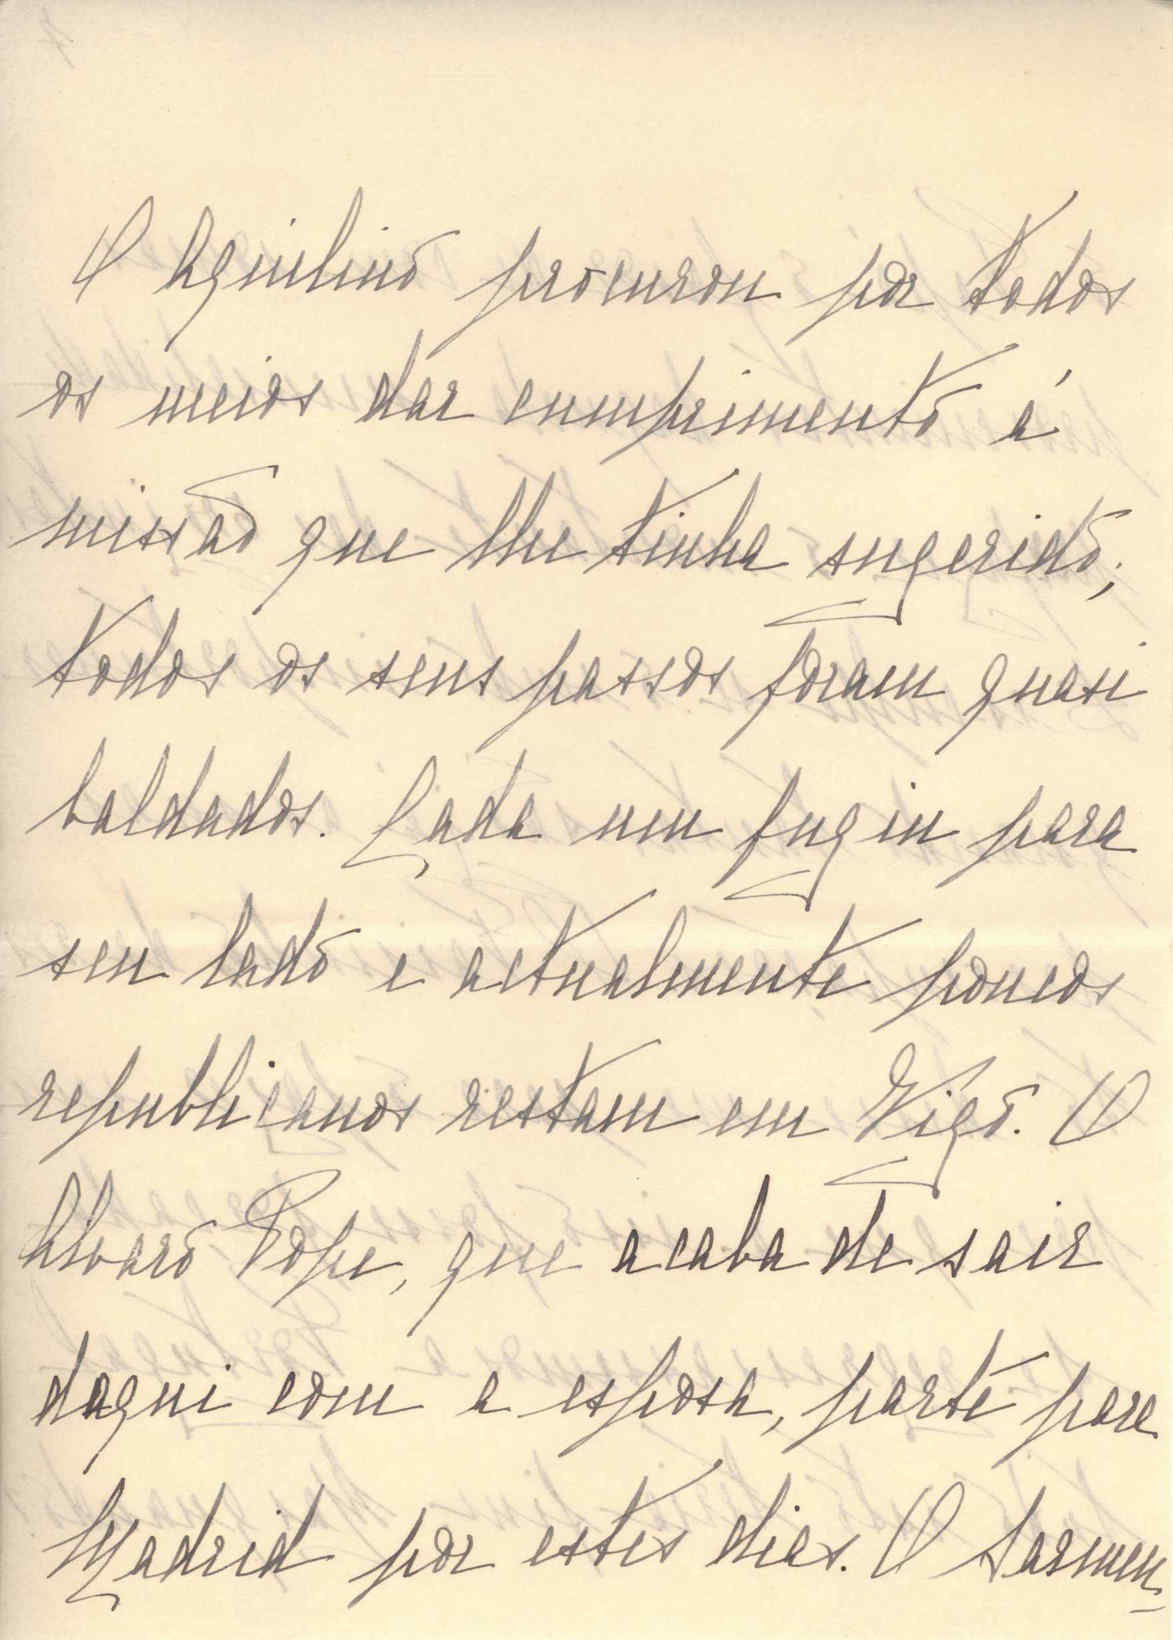 O Aquilino procurou por todos
os meios dar cumprimento á
missão que lhe tinha sugerido;
todos os seus passos foram quasi
baldados. Cada um fugiu para
seu lado e actualmente poucos
republicanos restam em Vigo. O
Alvaro Pope, que acaba de sair
daqui com a esposa, parte para
Madrid por estes dias. O Sarmen-